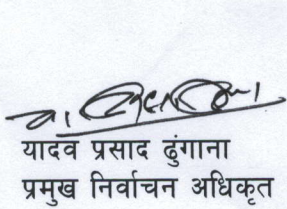 यादव प्रसाद ढुंगाना
प्रमुख निर्वाचन अधिकृत